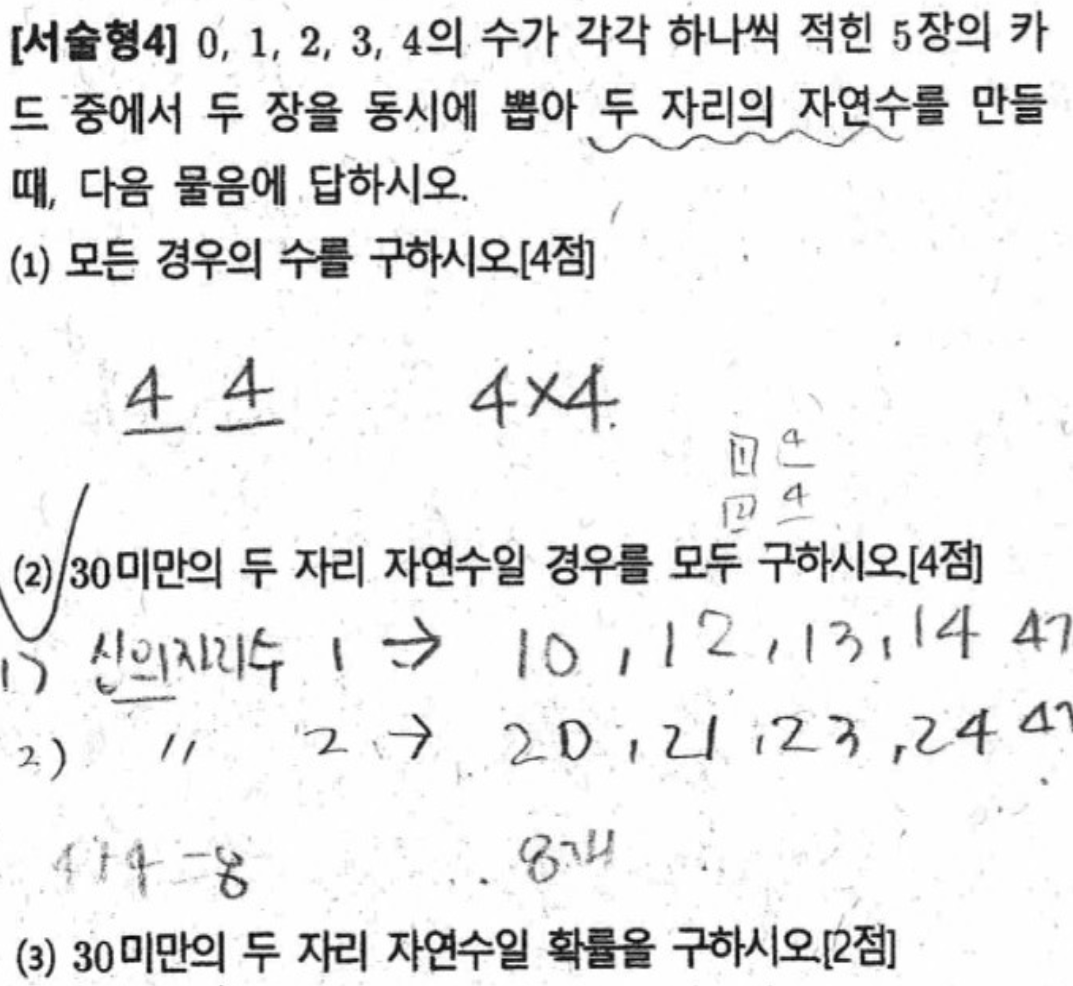 [서술형4] 0, 1, 2, 3, 4의 수가 각각 하나씩 적힌 5장의 카
드 중에서 두 장을 동시에 뽑아 두 자리의 자연수를 만들
때, 다음 물음에 답하시오.
(1) 모든 경우의 수를 구하시오.[4점]
4 4 4×4
1 4
2 4
(2) 30미만의 두 자리 자연수일 경우를 모두 구하시오.[4점]
1) 십의자리수 1 → 10, 12, 13, 14
2) 〃 2 → 20, 21, 23, 24
4+4=8 8개
(3) 30미만의 두 자리 자연수일 확률을 구하시오.[2점]